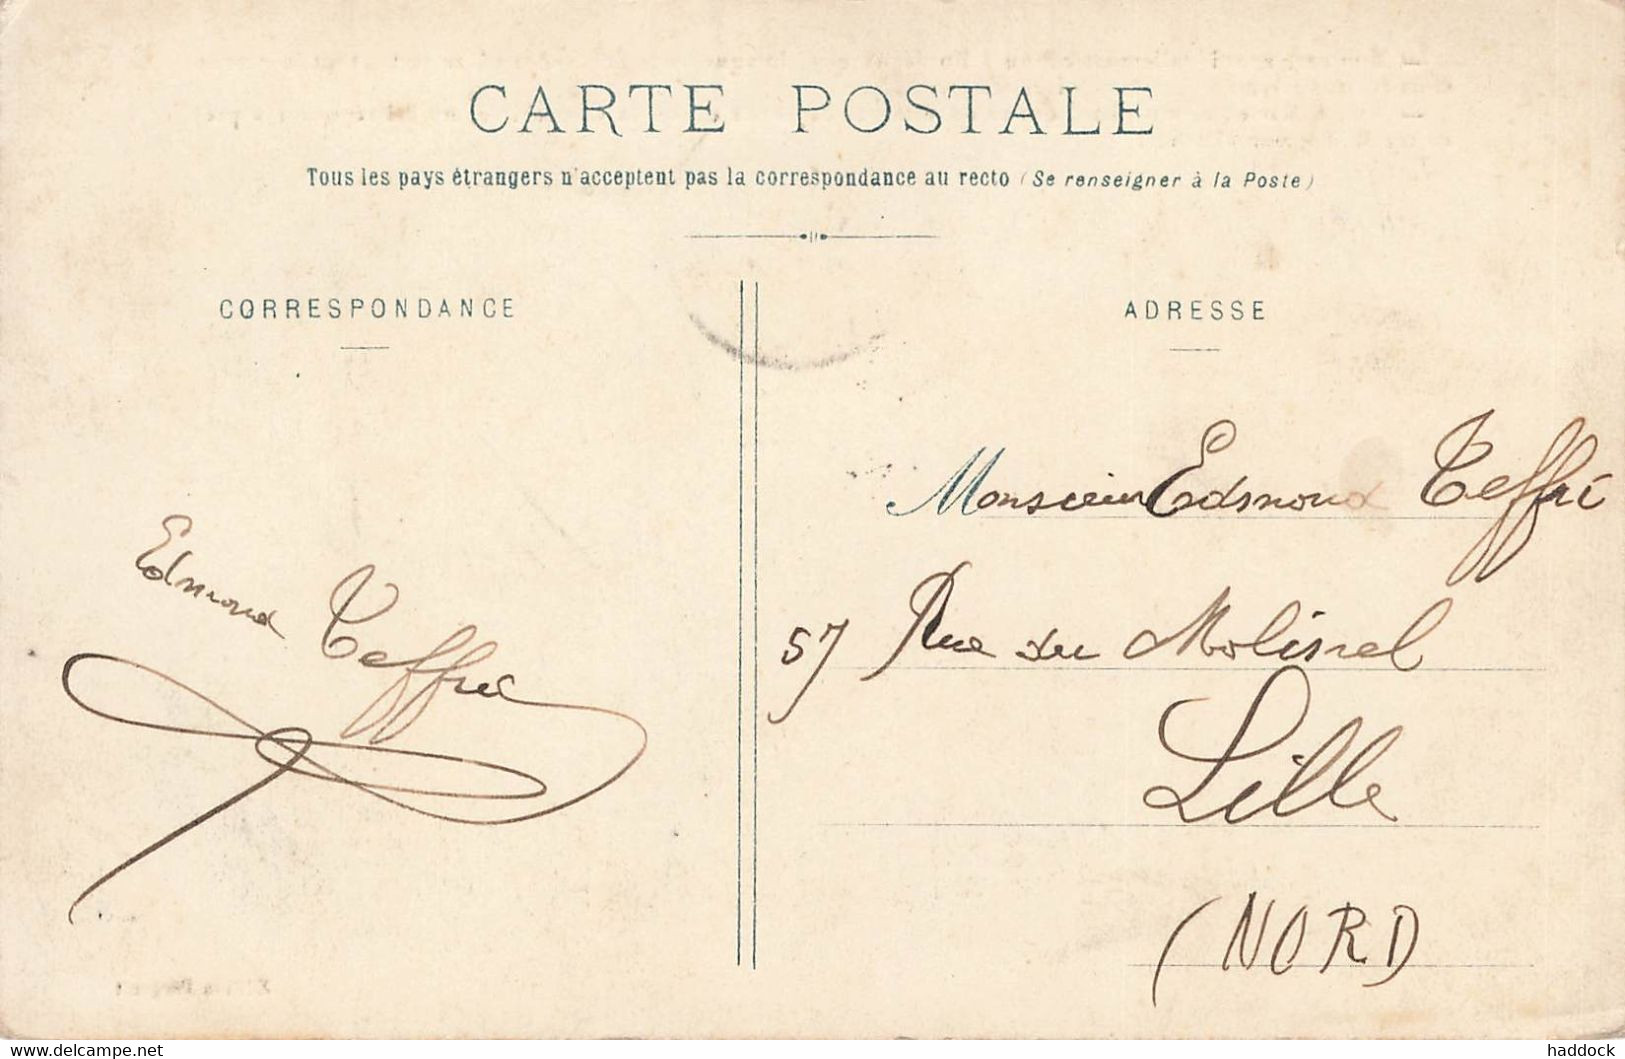 CARTE POSTALE
Tous les pays étrangers n'acceptent pas la correspondance au recto (Se renseigner à la Poste)
CORRESPONDANCE
ADRESSE
Monsieur Edmond Teffri
57 Rue du Molinel
Lille
(NORD
Edmond Teffri
www.delcampe.net
haddock